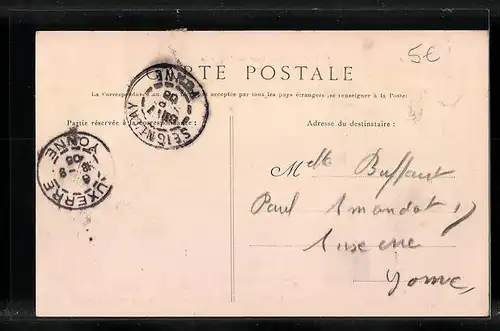 5€
CARTE POSTALE
La Correspondance au acceptée par tous les pays étrangers (se renseigner à la Poste)
Partie réservée à la correspondance :
Adresse du destinataire :
SEIGNELAY
YONNE
AUXERRE
YONNE
Melle Buffaut
Paul
Auxerre
Yonne